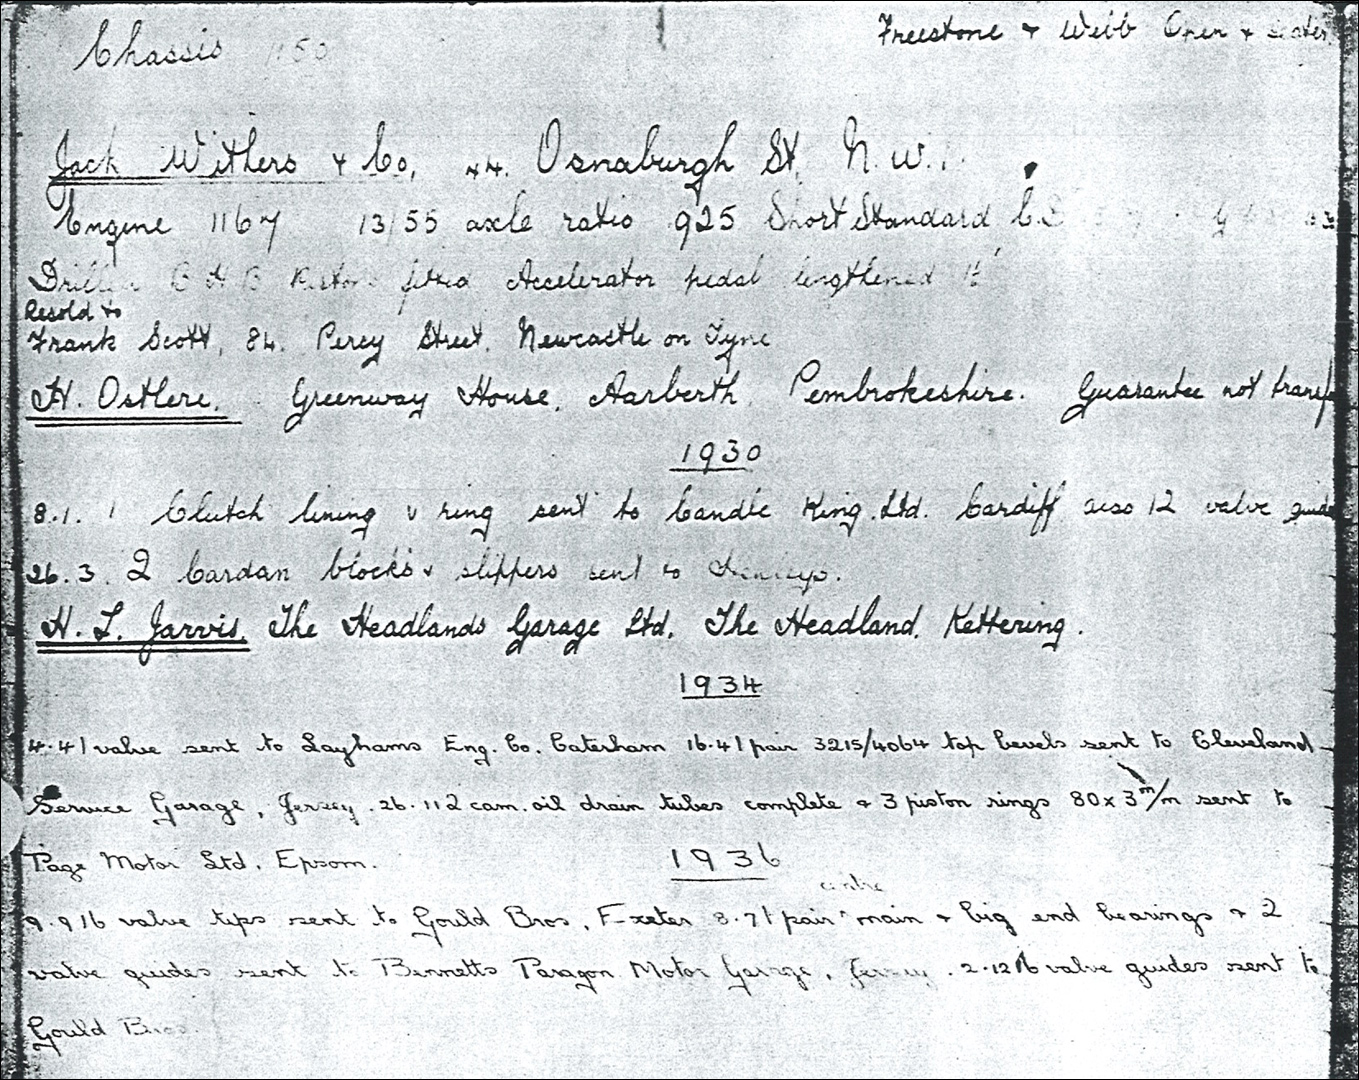 Chassis 1150
Freestone & Webb Open 4 Seater
Jack Withers & Co, 44. Osnaburgh St, N.W.1.
Engine 1167 13/55 axle ratio 925 Short Standard
fitted Accelerator pedal lengthened
Resold to
Frank Scott, 84. Percy Street. Newcastle on Tyne
H. Ostlere. Greenway House, Narberth, Pembrokeshire. Guarantee not transf
1930
8.1. 1 Clutch lining & ring sent to Candle King Ltd. Cardiff also 12 valve guide
26.3. 2 Cardan blocks & slippers sent to
H. L. Jarvis, The Headlands Garage Ltd, The Headland, Kettering.
1934
4.4 1 valve sent to Layhams Eng. Co. Caterham 16.4 1 pair 3215/4064 top bevels sent to Cleveland
Service Garage, Jersey. 26.11 2 cam. oil drain tubes complete & 3 piston rings 80 x 3 m/m sent to
Page Motor Ltd, Epsom.
1936
9.9 16 valve tips sent to Gould Bros, Exeter 8.7 1 pair centre main & big end bearings & 2
valve guides sent to Bennetts Paragon Motor Garage, Jersey. 2.12 16 valve guides sent to
Gould Bros.